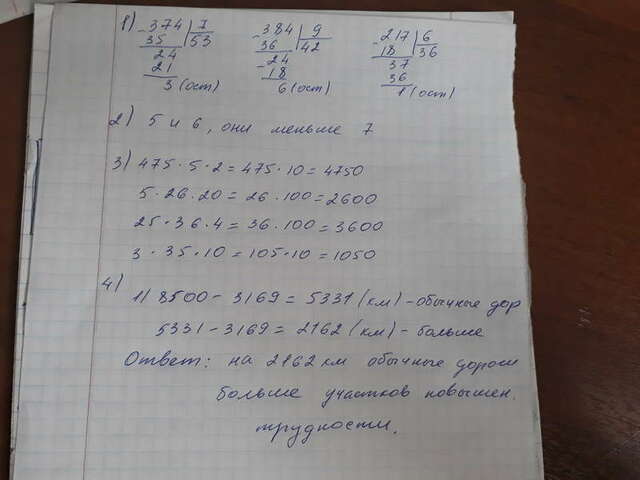 1) -374 | 7
35 | 53
24
21
3 (ост)
-384 | 9
36 | 42
-24
18
6 (ост)
-217 | 6
18 | 36
37
36
1 (ост)
2) 5 и 6, они меньше 7
3) 475 · 5 · 2 = 475 · 10 = 4750
5 · 26 · 20 = 26 · 100 = 2600
25 · 36 · 4 = 36 · 100 = 3600
3 · 35 · 10 = 105 · 10 = 1050
4)
1) 8500 - 3169 = 5331 (км) - обычные дор
5331 - 3169 = 2162 (км) - больше
Ответ: на 2162 км обычные дороги
больше участков повышен.
трудности.